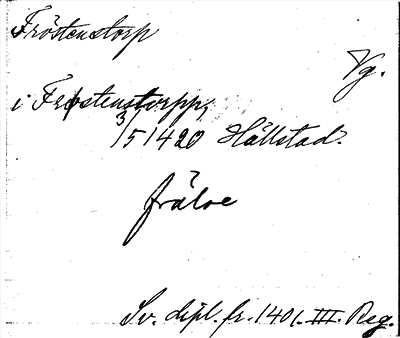 Fröstenstorp
Vg.
i Frøstenstorpp,
3/5 1420 Hällstad.
frälse
Sv. dipl. fr. 1401. III. Reg.